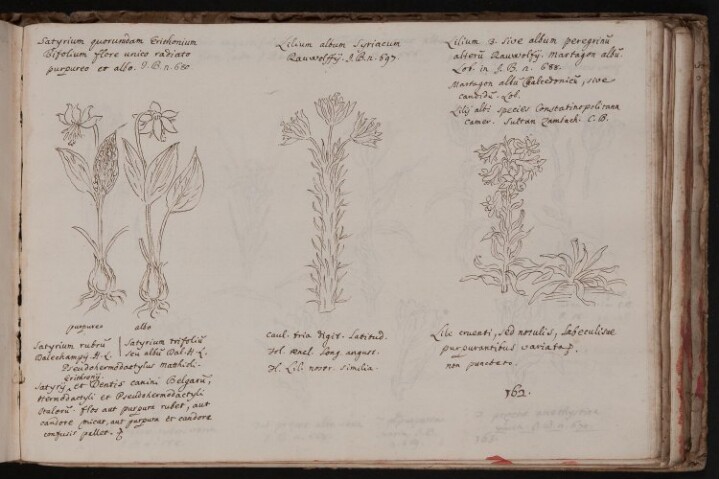 Satyrium quorundam Erithonium
Bifolium flore unico radiato
purpureo et albo. J.B. n. 680.
purpureo albo
Satyrium rubrũ
Dalechampij. H. L.
Satyrium trifoliũ
seu albũ Dal. H. L.
Pseudohermodactylus Mathioli.
Erithronij
Satyrij et Dentis canini Belgarũ,
Hermodactyli et Pseudohermodactyli
Italorũ. flos aut purpura rubet, aut
candore micat, aut purpura et candore
confusis pallet.
Lilium album Syriacum
Rauwolffij. J.B. n. 697.
caul. tria digit. Latitud.
fol. long. angust.
fl. Lili nostr. similia.
Lilium 3. sive album peregrinũ
alterũ Rauwolfij. Martagon albũ.
Lob. in J.B. n. 688.
Martagon albũ Chalcedonicũ, sive
candidũ. Lob.
Lilij albi species Constatinopolitana
Camer. Sultan Zambach. C.B.
Lile cruenti, sed notulis,
purpurantibus variata.
non punctato.
162.